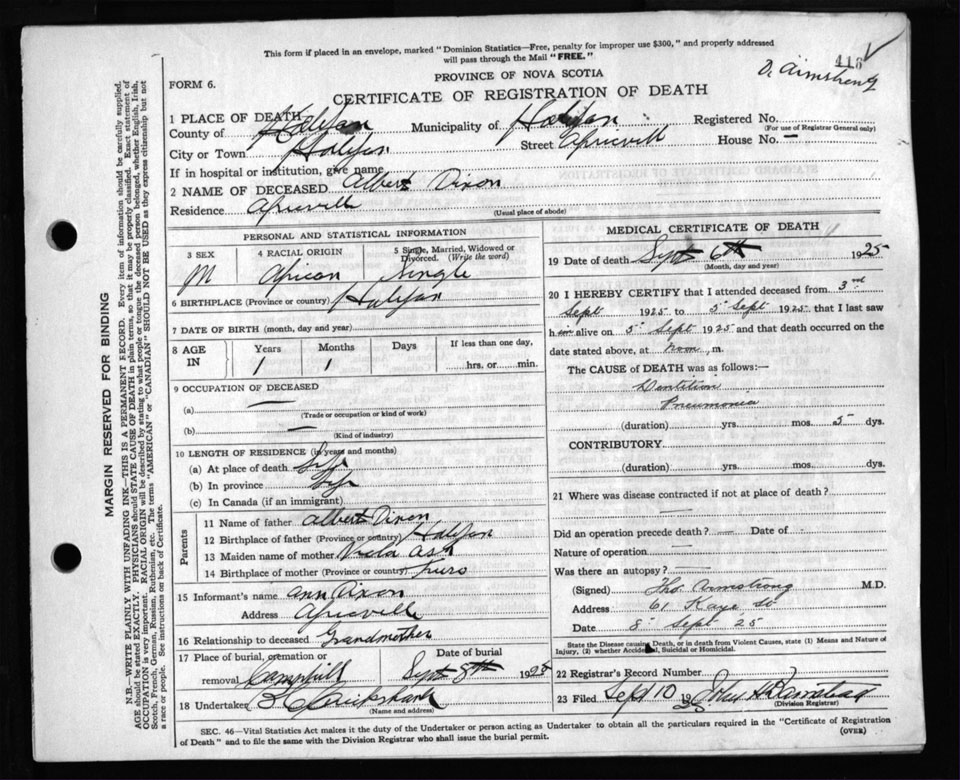 This form if placed in an envelope, marked "Dominion Statistics—Free, penalty for improper use $300," and properly addressed
will pass through the Mail "FREE."
418
D. Armstrong
FORM 6.
PROVINCE OF NOVA SCOTIA
CERTIFICATE OF REGISTRATION OF DEATH
1 PLACE OF DEATH
County of Halifax Municipality of Halifax Registered No.
(For use of Registrar General only)
City or Town Halifax Street Africvill House No. —
If in hospital or institution, give name
2 NAME OF DECEASED Albert Dixon
Residence Africvill (Usual place of abode)
PERSONAL AND STATISTICAL INFORMATION
3 SEX M
4 RACIAL ORIGIN African
5 Single, Married, Widowed or Divorced (Write the word) Single
6 BIRTHPLACE (Province or country) Halifax
7 DATE OF BIRTH (month, day and year)
8 AGE IN Years 1 Months 1 Days If less than one day, hrs. or min.
9 OCCUPATION OF DECEASED
(a) —
(Trade or occupation or kind of work)
(b) —
(Kind of industry)
10 LENGTH OF RESIDENCE (in years and months)
(a) At place of death Life
(b) In province Life
(c) In Canada (if an immigrant)
Parents
11 Name of father Albert Dixon
12 Birthplace of father (Province or country) Halifax
13 Maiden name of mother Ash
14 Birthplace of mother (Province or country) Truro
15 Informant's name Ann Dixon
Address Africvill
16 Relationship to deceased Grandmother
17 Place of burial, cremation or removal Camphill
Date of burial Sept 8th 1925
18 Undertaker Cruikshank
(Name and address)
MEDICAL CERTIFICATE OF DEATH
19 Date of death Sept 6th 1925
(Month, day and year)
20 I HEREBY CERTIFY that I attended deceased from 3rd
Sept 1925 to 5 Sept 1925 that I last saw
him alive on 5 Sept 1925 and that death occurred on the
date stated above, at noon, m.
The CAUSE of DEATH was as follows:—
Dentition
Pneumonia
(duration) yrs. mos. 5 dys.
CONTRIBUTORY
(duration) yrs. mos. dys.
21 Where was disease contracted if not at place of death?
—
Did an operation precede death? — Date of —
Nature of operation —
Was there an autopsy? —
(Signed) Tho. Armstrong M.D.
Address 61 Kaye St
Date 8 Sept 25
State the Disease causing Death, or in death from Violent Causes, state (1) Means and Nature of
Injury, (2) whether Accidental, Suicidal or Homicidal.
22 Registrar's Record Number
23 Filed Sept 10 John A Barnstead
(Division Registrar)
SEC. 46—Vital Statistics Act makes it the duty of the Undertaker or person acting as Undertaker to obtain all the particulars required in the "Certificate of Registration
of Death" and to file the same with the Division Registrar who shall issue the burial permit. (OVER)
MARGIN RESERVED FOR BINDING
N.B.—WRITE PLAINLY WITH UNFADING INK—THIS IS A PERMANENT RECORD. Every item of information should be carefully supplied.
AGE should be stated EXACTLY. PHYSICIANS should STATE CAUSE OF DEATH in plain terms, so that it may be properly classified. Exact statement of
OCCUPATION is very important. RACIAL ORIGIN will be described by stating to what people or tongue the deceased person belonged, whether English, Irish,
Scotch, French, German, Russian, Ruthenian, etc. The terms "AMERICAN" or "CANADIAN" SHOULD NOT BE USED as they express citizenship but not
a race or people. See instructions on back of Certificate.